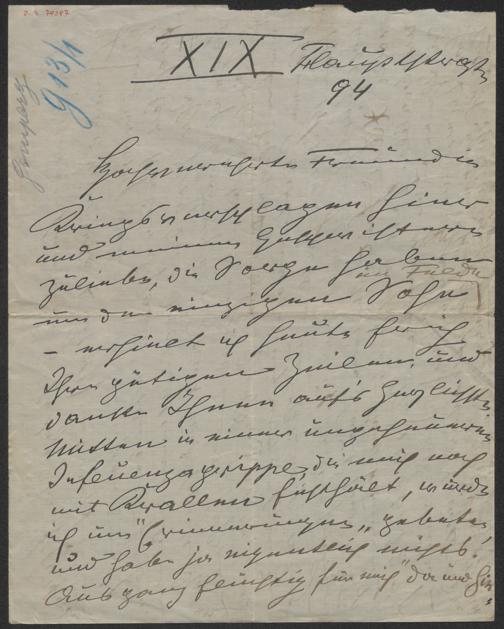 XIX Hauptstraße
94
Hochverehrte Freundin
Kriegsverschlagen hier
und meinen Geschwistern
zuliebe, die Sorge haben
um den einzigen Sohn
im Felde
– erhielt ich heute früh
Ihre gütigen Zeilen und
danke Ihnen auf's herzlichste
Mitten in einer ungeheueren
Influenzagrippe, die mich noch
mit Krallen festhält, wurde
ich um "Erinnerungen" gebeten
und habe ja eigentlich nichts.
Ausgang für mich da und
913/1